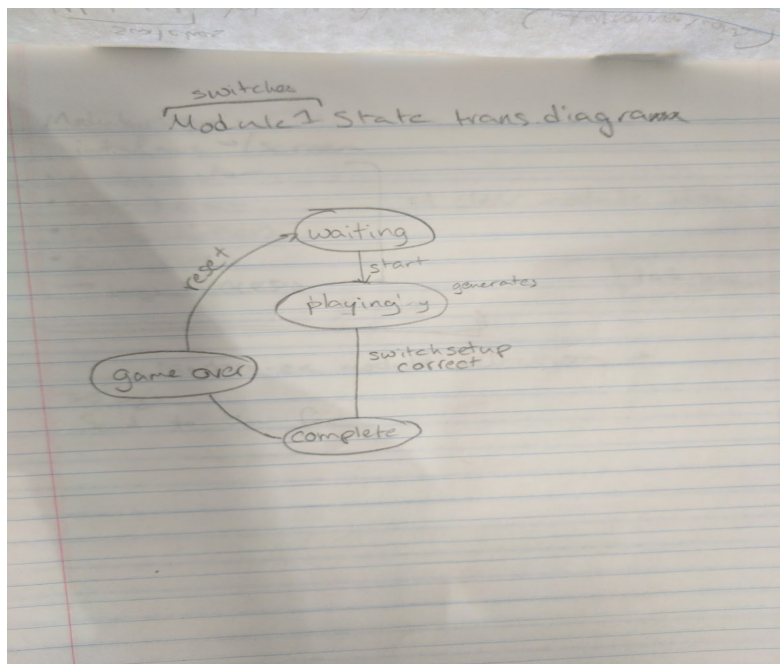 switches
Module 1 State trans. diagram
waiting
reset
start
playing
generates
switch setup
correct
game over
complete